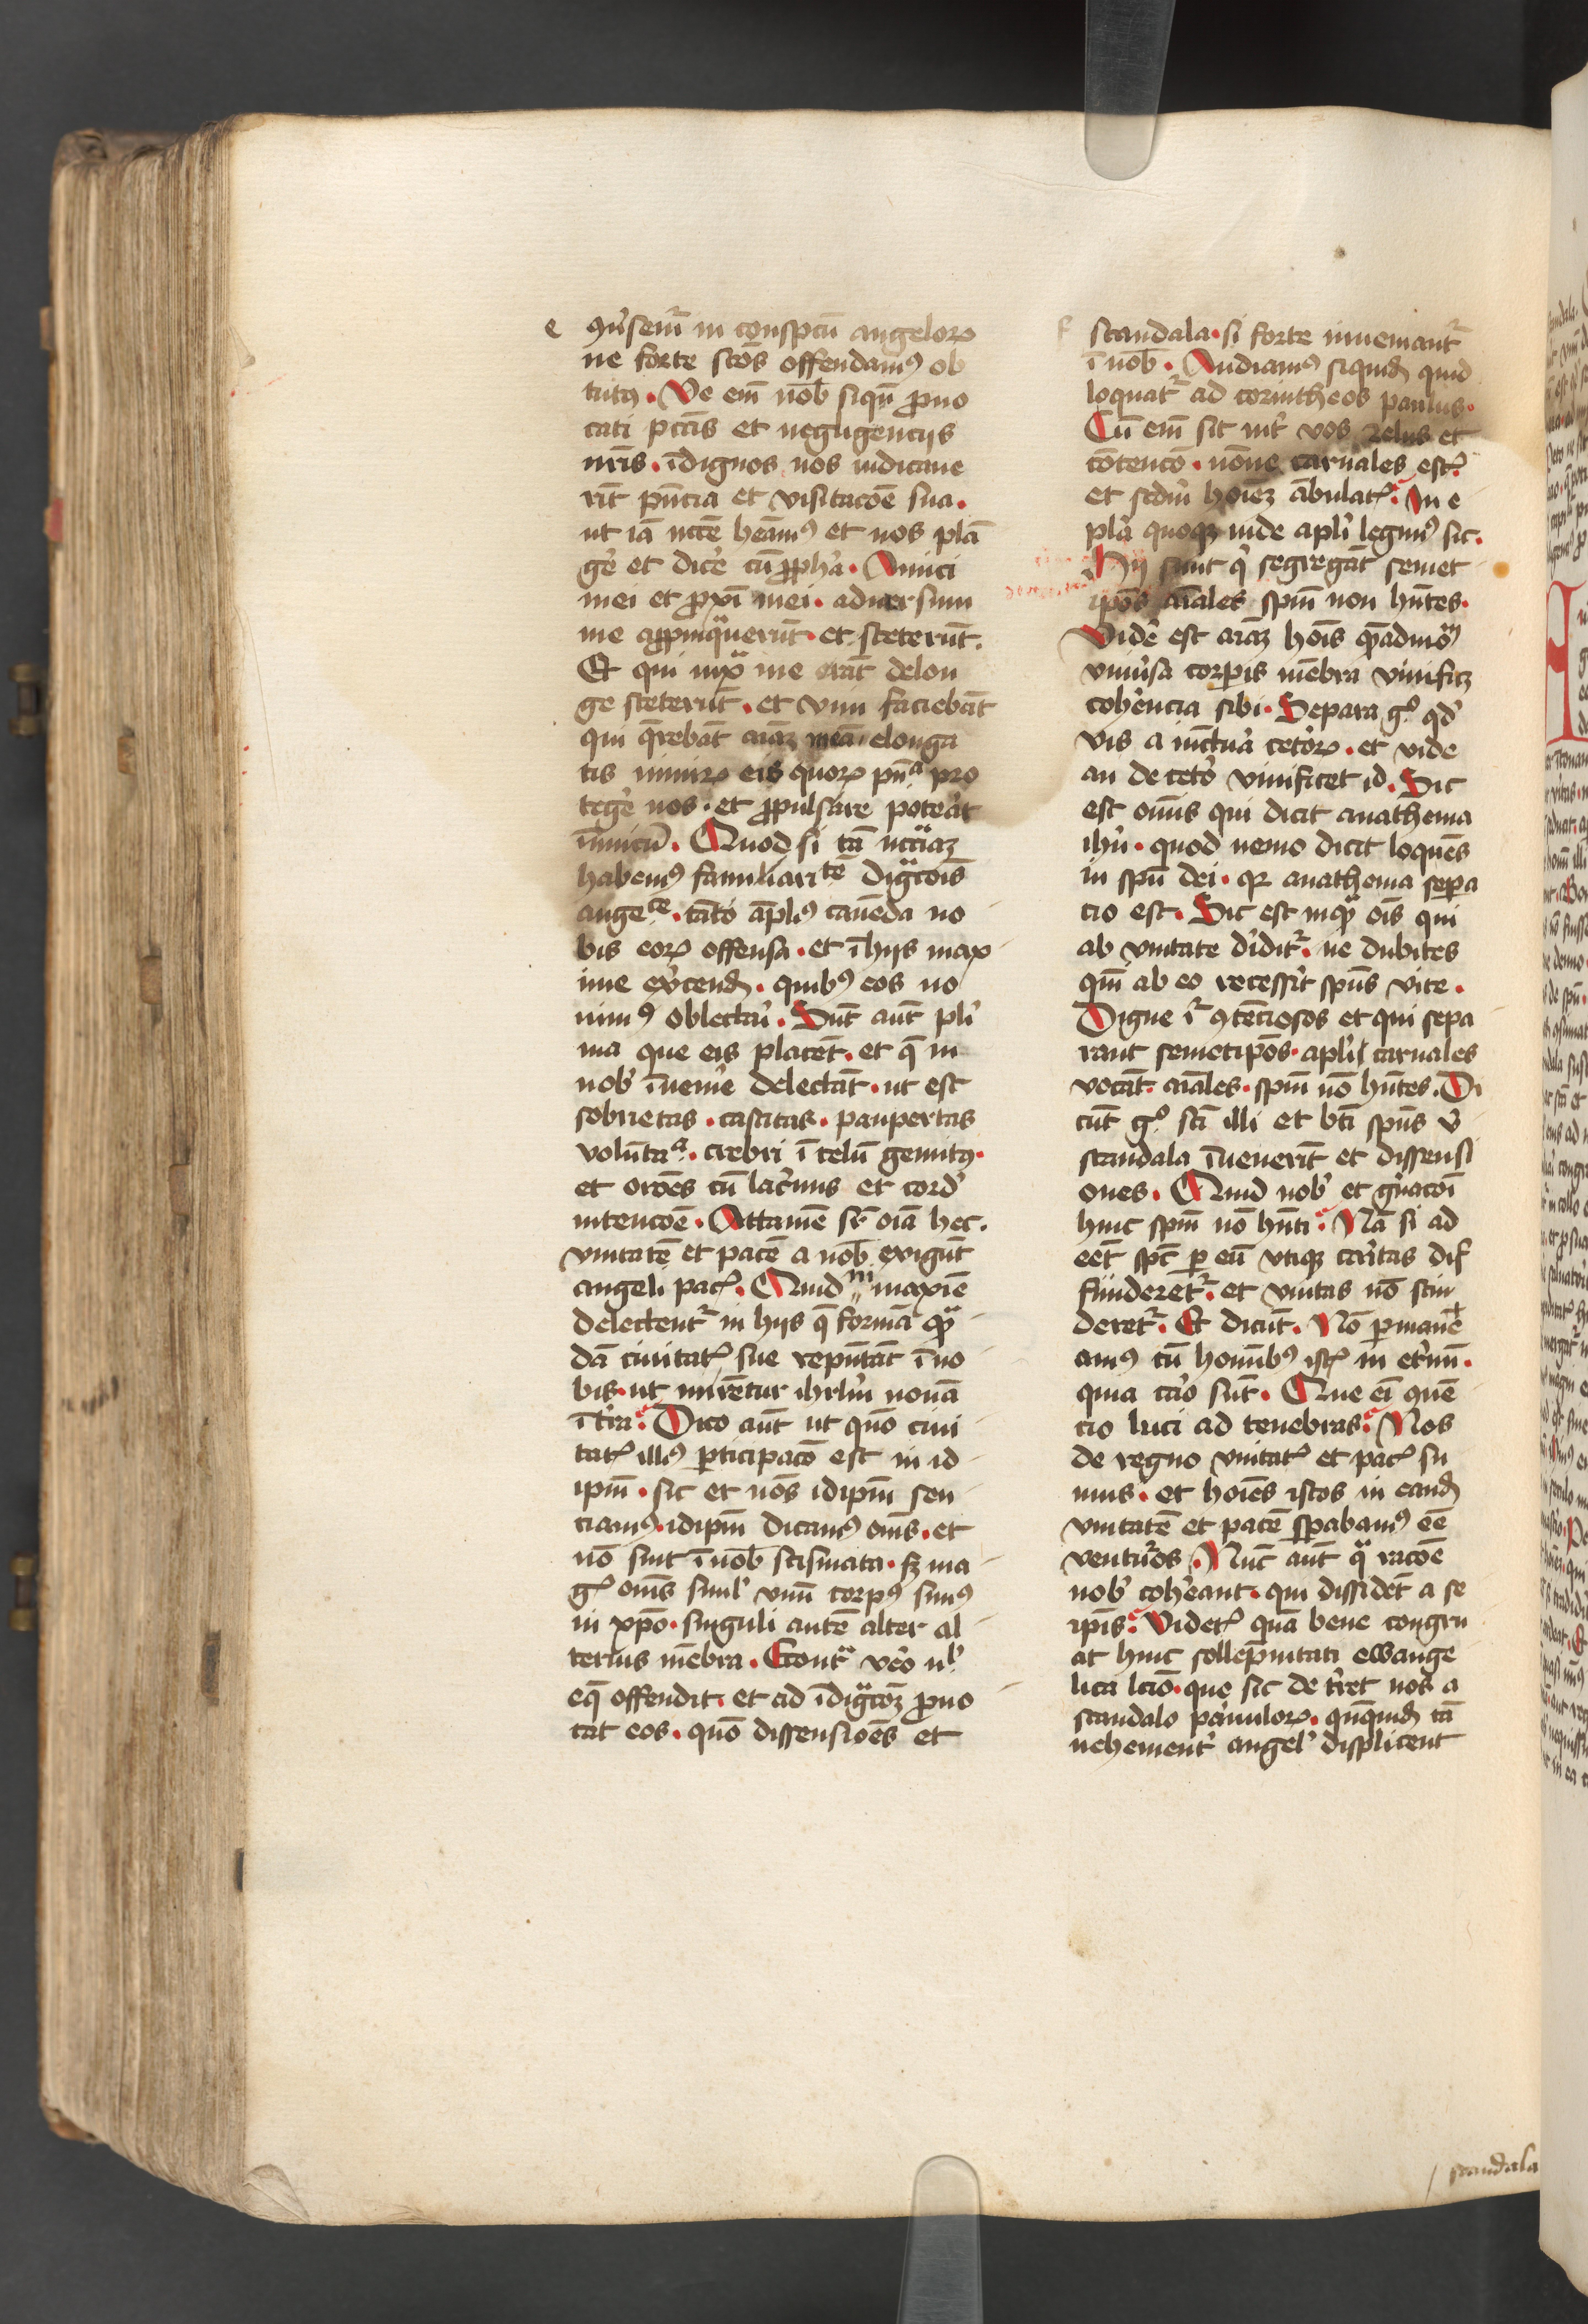 e
ꝯu̾semꝰ in conspc̄tu angeloꝝ
ne forte sc̄os offendamꝰ ob
tutꝰ. Ve em̄ nob̄ siqn̄ ꝓuo
cati pctīs et negligencijs
nr̄is. īdignos nos iudicaue
rīt pn̄cia et visitacōe sua.
ut iā nc̄cē heāmꝰ et nos plā
ge̾ et dice̾ cū ꝓph̾a. Amici
mei et ꝓxī mei. aduersum
me appinq̄uerūt. et steterūt.
Et qui iuxᵃ me erāt delon
ge steterūt. et vim faciebāt
qui q̄rebāt aīaꝫ meā. elonga
tis nimiꝝ eis quoꝝ pn̄ᵃ pro
tege̾ nos. et ꝓpulsare pote̾āt
īimicū. Quod si tā nc̄cīaꝫ
habemꝰ familiaritē digᵃcōīs
angeᶜᵉ. tāto āplꝰ cauēda no
bis eoꝝ offensa. et ī hijs max
ime exc̾cend̄. quibꝰ eos no
uimꝰ oblectari. Sūt aūt pli̾
ma que eis placēt. et q̄ in
nob̾ īuenīe delectāt. ut est
sobrietas. castitas. paupertas
volūtaᵃ. crebri ī celū gemitꝰ.
et orōēs cū lac̾mis et cord̾
intencōē. Attamē sr̄ oīa hec.
vnitatē et pacē a nob̄ exigūt
angeli pacꝭ. Quid ni maxīe
delectentᷣ in hijs q̄ formā qᵃ
dā ciuitatꝭ sue repn̄tāt ī no
bis. ut mirētur ihrl̄m nouā
ī tr̄a. Dico aūt ut quō ciui
tatꝭ illiꝰ ꝑticipacō est in id
ipm̄. sic et nōs idipm̄ sen
ciamꝰ. idipm̄ dicamꝰ om̄s. et
nō sint ī nob̄ scismata. sꝫ ma
gꝭ om̄s siml̾ vnū corpꝰ simꝰ
in xp̄o. singuli autē alter al
terius mēbra. Econtᵃ ve̾o nˡ
eq̄ offendit. et ad īdigᵃcōeꝫ ꝓuo
cat eos. quō dissensiōēs et
f
scandala. si forte inueniantᷣ
ī nob̄. Audiamꝰ siquid̄ quid
loquatᷣ ad corintheos paulus.
Cū em̄ sit int̾ vos zelus et
cōtencō. nōne carnales estꝭ.
et scdm̄ hoīeꝫ ābulatꝭ. In e
pla̾ quoqꝫ iude apli̾ legimꝰ sic.
Hij sunt qͥ segregāt semet
ipōs aīales spm̄ non hn̄tes.
Vide̾ est aīaꝫ hoīs quēadmōꝫ
vniu̾sa corpis mēbra viuificꝫ
cohe̾ncia sibi. Separa gͦ qd̾
vis a iunctura ceto̾ꝝ. et vide
an de ceto̾ viuificet id. Sic
est om̄is qui dicit anathema
ihū. quod nemo dicit loquēs
in spū dei. qꝛ anathema sepa
cio est. Sic est inqᵃ om̄is qui
ab vnitate d̾iditᷣ. ne dubites
qm̄ ab eo recesserit spūs vite.
Digne iᷣ ꝯtēciosos et qui sepa
rant semetipōs. apli̾ carnales
vocāt. aīales. spm̄ nō hn̄tes. Di
cūt gͦ sc̄i illi et bt̄i spūs v̾
scandala īuenerīt et dissensi
ones. Quid nob̾ et gn̾acōi
huic spm̄ nō hn̄ti. Nā si ad
eēt spc̄ ꝑ eū vtiqꝫ caritas dif
funderetᷣ. et vnitas nō scin
deretᷣ. Et dicūt. Nō ꝑmane
amꝰ cū hom̄ibꝰ istꝭ in et̾nū.
quia ca̾o sūt. Que ei̾ ꝯuē
cio luci ad tenebras. Nos
de regno vnitatꝭ et pacꝭ su
mus. et hoīes istos in eand̄
vnitatē et pacē sp̄abamꝰ eē
venturos. Nūc aūt qᵃ racōē
nob̾ cohe̾ant. qui dissidēt a se
ipīs. Videtꝭ quā bene congru
at huic sollepnitati ewange
lica lc̄io. que sic dete̾ret nos a
scandalo paruuloꝝ. quāquid̄ tā
uehement̾ angel̾ displicent
scandala